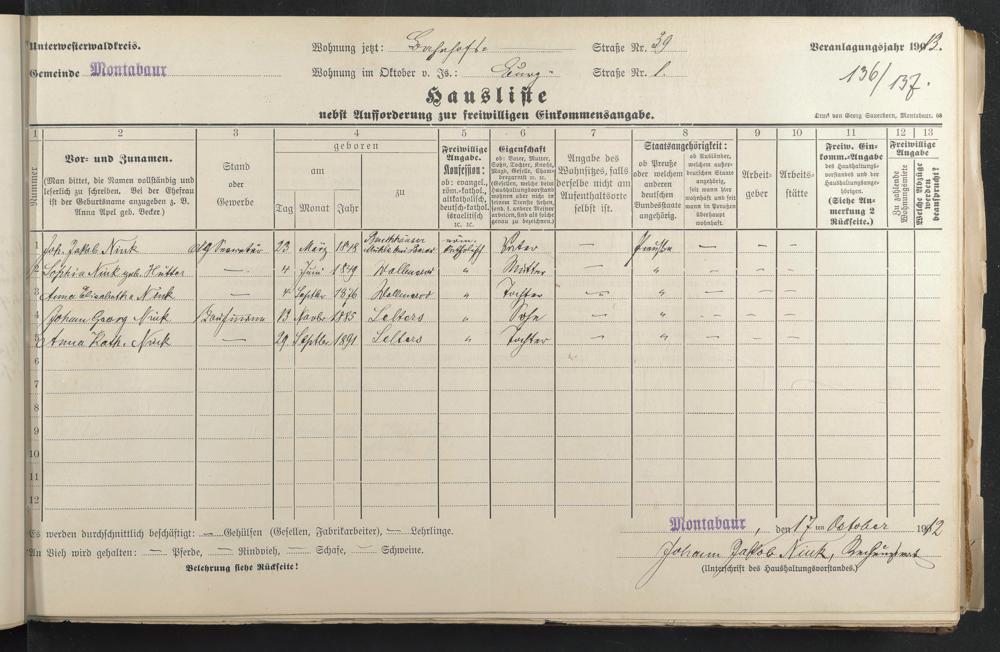 Unterwesterwaldkreis.
Wohnung jetzt: Bahnhofs- Straße Nr. 39
Veranlagungsjahr 1913.
Gemeinde Montabaur
Wohnung im Oktober v. Js.: Burg- Straße Nr. 1.
136/137.
Hausliste
nebst Aufforderung zur freiwilligen Einkommensangabe.
Druck von Georg Sauerborn, Montabaur. 68
1 2 3 4 5 6 7 8 9 10 11 12 13
Nummer
Vor- und Zunamen.
(Man bittet, die Namen vollständig und
leserlich zu schreiben. Bei der Ehefrau
ist der Geburtsname anzugeben z. B.
Anna Apel geb. Becker.)
Stand
oder
Gewerbe
geboren
am
zu
Tag Monat Jahr
Freiwillige
Angabe.
Konfession:
ob: evangel.,
röm.-kathol.,
altkatholisch,
deutsch-kathol.
israelitisch
ꝛc. ꝛc.
Eigenschaft
ob: Vater, Mutter,
Sohn, Tochter, Knecht,
Magd, Geselle,
Angabe des
Wohnsitzes, falls
derselbe nicht am
Aufenthaltsorte
selbst ist.
Staatsangehörigkeit:
ob Preuße
oder welchem
anderen
deutschen
Bundesstaate
angehörig.
ob Ausländer,
welchem außer-
deutschen Staate
angehörig,
seit wann im
Preußen
überhaupt
wohnhaft.
Arbeit-
geber
Arbeits-
stätte
Freiw. Ein-
komm.-Angabe
des Haushaltungs-
vorstandes und der
Haushaltungsange-
hörigen.
(Siehe An-
merkung 2
Rückseite.)
Freiwillige
Angabe
Zu zahlende
Wohnungsmiete
Welche Abzüge
werden
beansprucht?
1 Joh. Jakob Nink 23 März 1848 röm. katholisch Vater — Preuße — — —
2 Sophia Nink geb. Hütter — 4 Juni 1849 Wallmerod " Mutter — " — — —
3 Anna Elisabetha Nink — 4 Septbr 1876 Wallmerod " Tochter — " — — —
4 Johann Georg Nink Kaufmann 13 Novbr 1885 Selters " Sohn — " — — —
5 Anna Kath. Nink — 29 Septbr 1891 Selters " Tochter — " — — —
6
7
8
9
10
11
12
Es werden durchschnittlich beschäftigt: — Gehülfen (Gesellen, Fabrikarbeiter), — Lehrlinge.
Montabaur, den 17ten Oktober 1912
An Vieh wird gehalten: — Pferde, — Rindvieh, — Schafe, — Schweine.
Johann Jakob Nink,
Belehrung siehe Rückseite!
(Unterschrift des Haushaltungsvorstandes.)